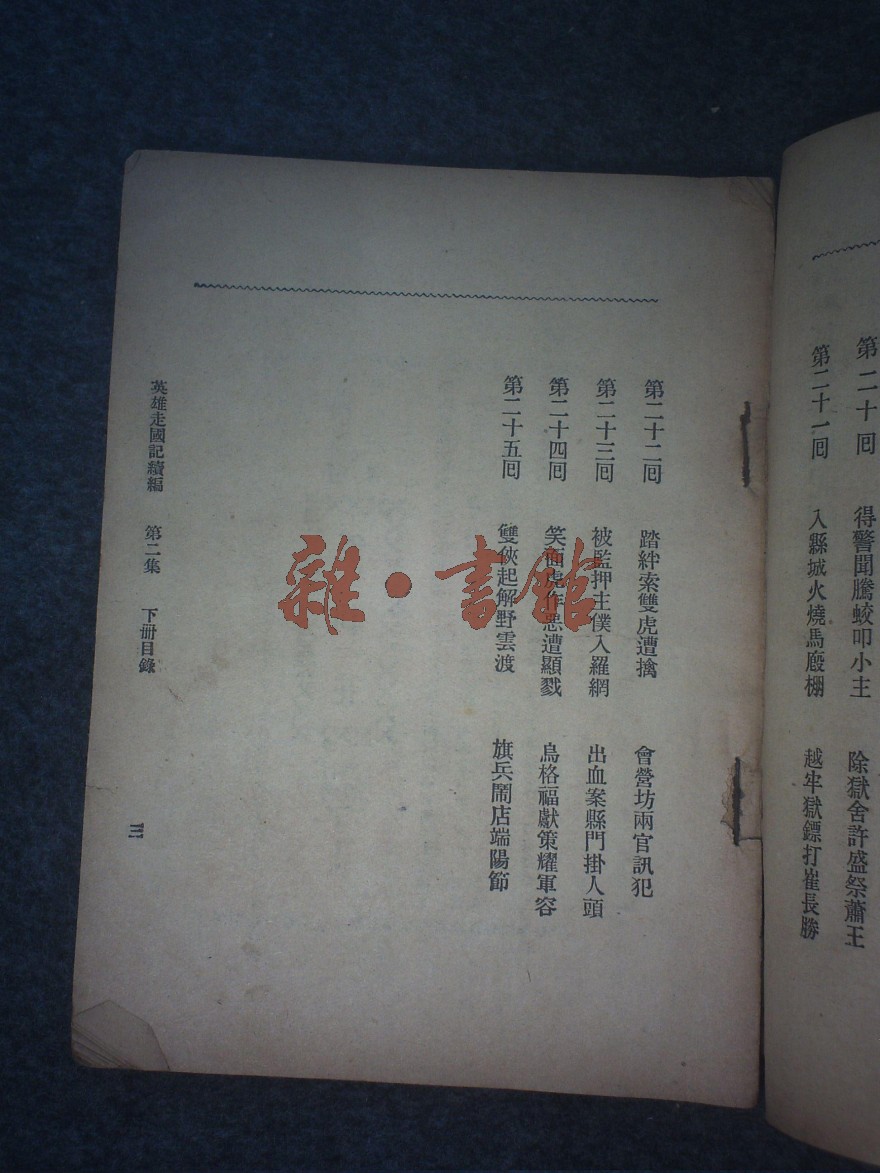 第二十回 得警聞騰蛟叩小主 除獄舍許盛祭蕭王
第二十一回 入縣城火燒馬廄棚 越牢獄鏢打崔長勝
第二十二回 踏絆索雙虎遭擒 會營坊兩官訊犯
第二十三回 被監押主僕入羅網 出血案縣門掛人頭
第二十四回 笑面虎作惡遭顯戮 烏格福獻策耀軍容
第二十五回 雙俠起解野雲渡 旗兵鬧店端陽節
英雄走國記續編 第二集 下冊目錄 三
雜·書館